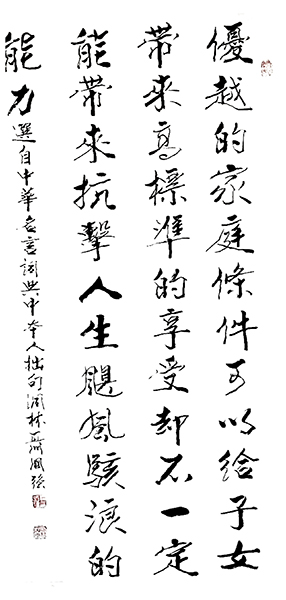 優越的家庭條件可以給子女
帶來高標準的享受却不一定
能帶來抗擊人生颶風駭浪的
能力 選自中華名言詞典中本人拙句 周林 聶風強